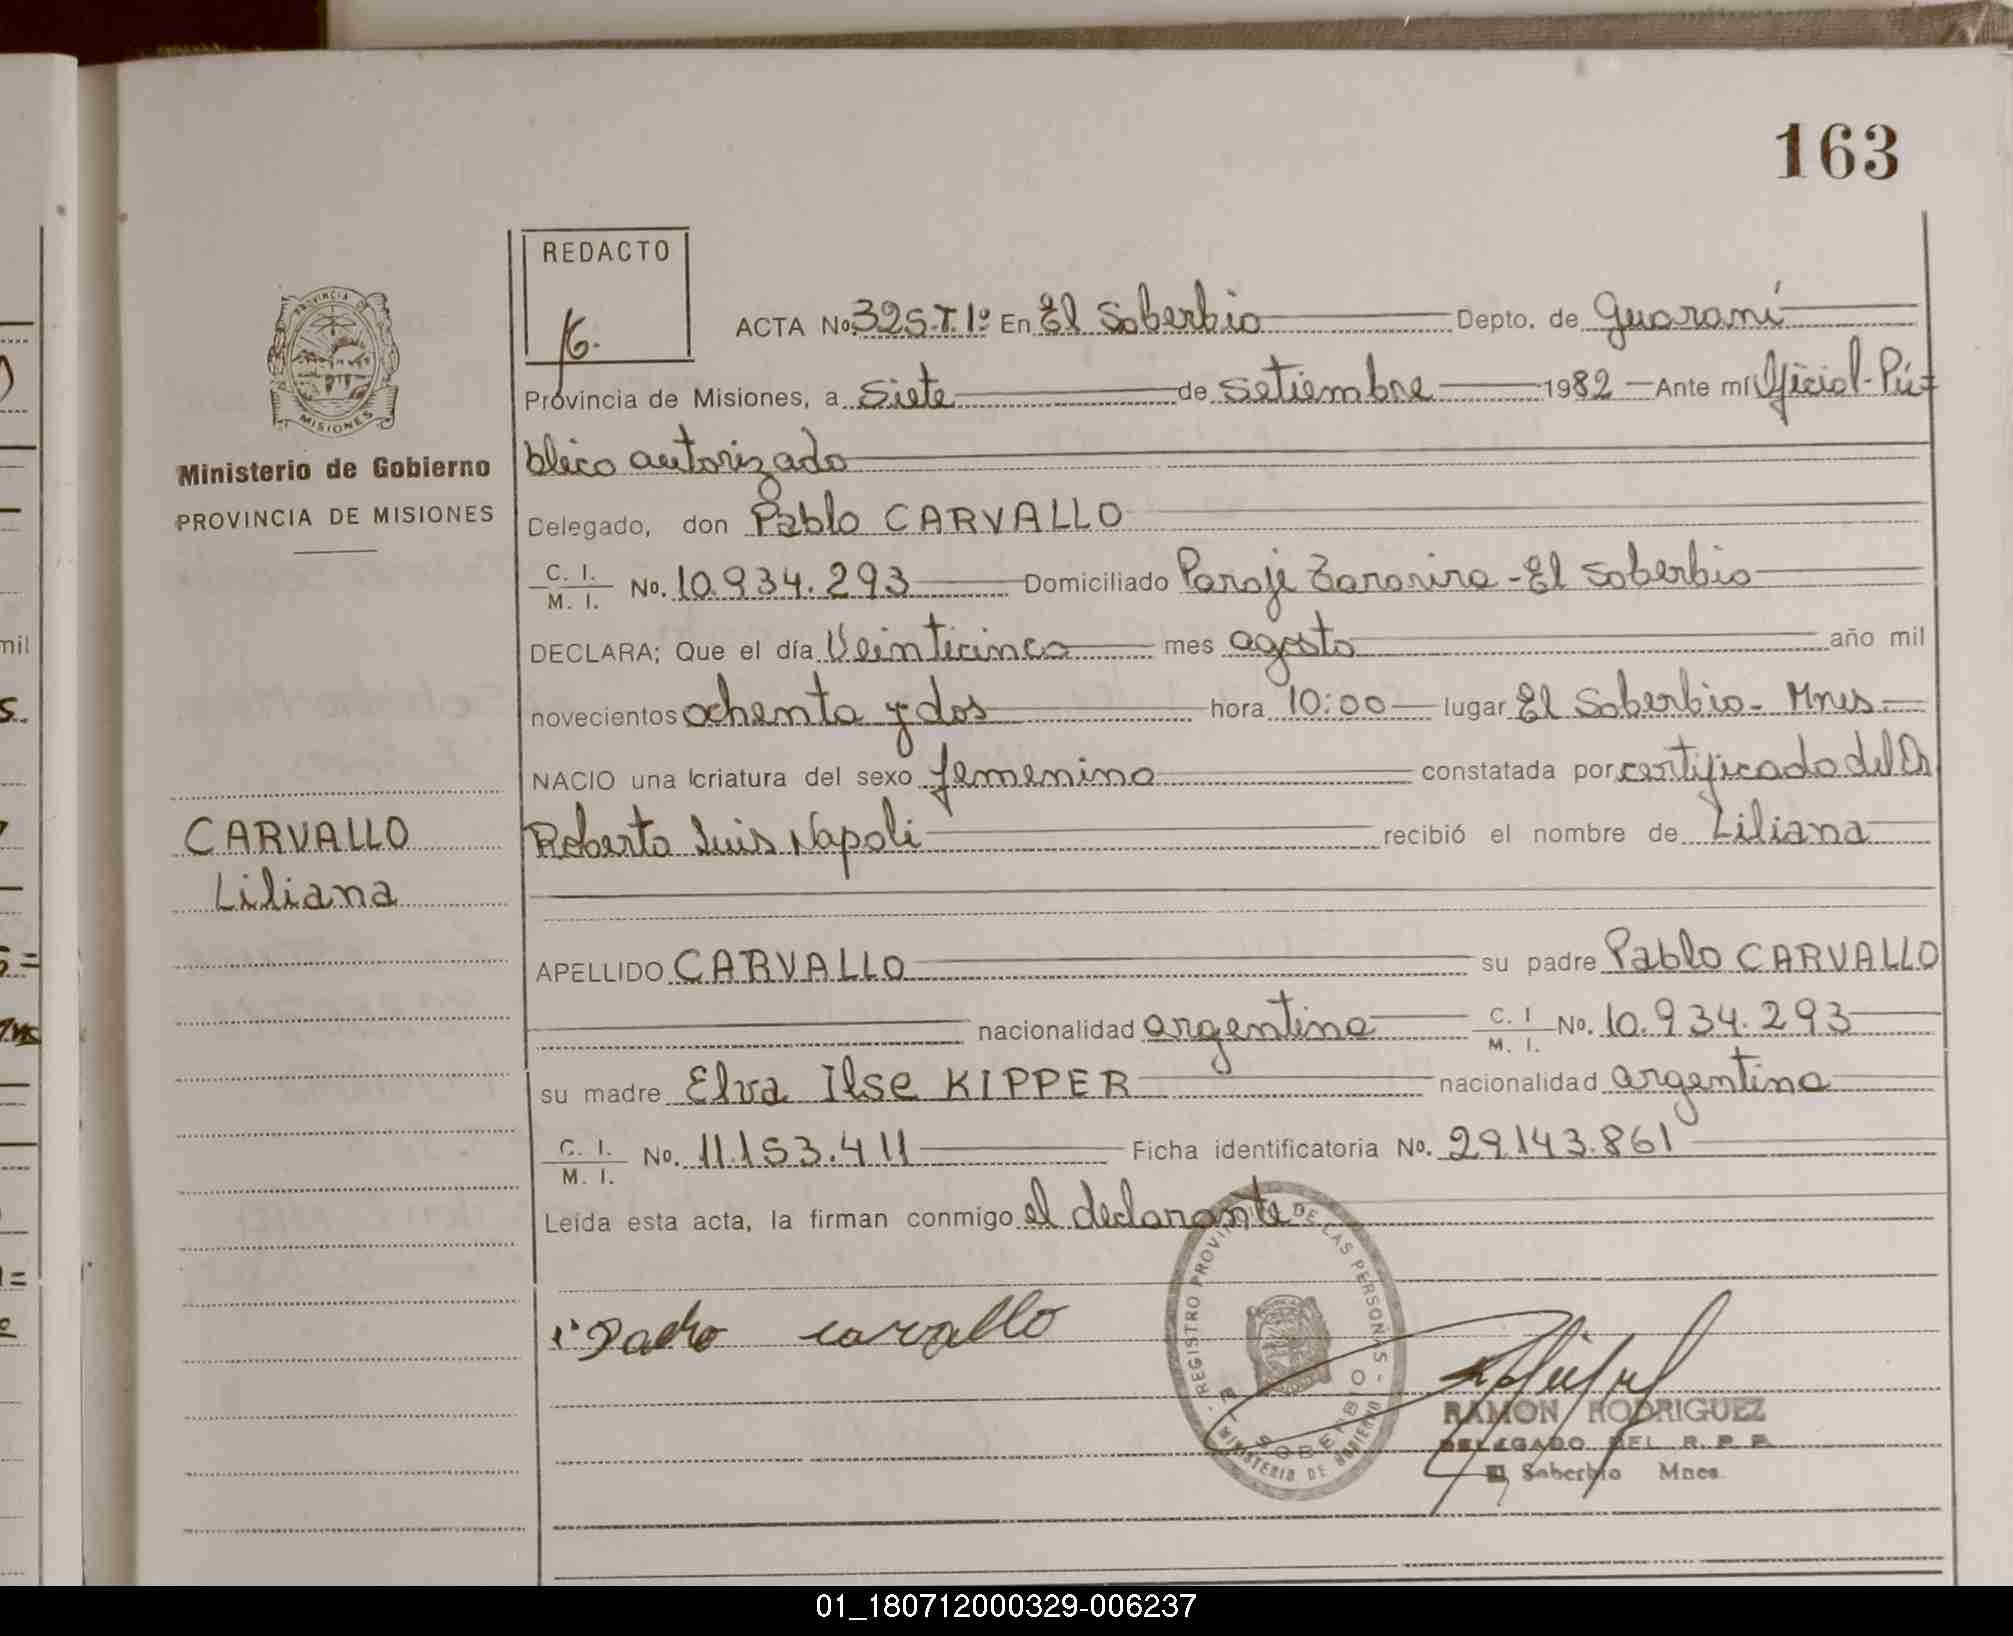 163
REDACTO
ACTA No. 325.T.1º En El Soberbio Depto. de Guaraní
Provincia de Misiones, a Siete de setiembre 1982 Ante mí Oficial Pú-
blico autorizado
Ministerio de Gobierno
PROVINCIA DE MISIONES
Delegado, don Pablo CARVALLO
C. I.
M. I. No. 10.934.293 Domiciliado Paraje - El Soberbio
DECLARA; Que el día Veinticinco mes agosto año mil
novecientos ochenta y dos hora 10:00 lugar El Soberbio - Mnes
NACIO una criatura del sexo femenino constatada por certificado del Dr
CARVALLO
Liliana
Roberto Luis Napoli recibió el nombre de Liliana
APELLIDO CARVALLO su padre Pablo CARVALLO
nacionalidad argentina C. I
M. I. No. 10.934.293
su madre Elva Ilse KIPPER nacionalidad argentina
C. I.
M. I. No. 11.153.411 Ficha identificatoria No. 29.143.861
Leída esta acta, la firman conmigo el declarante
carvallo
REGISTRO PROVINCIAL DE LAS PERSONAS
EL SOBERBIO
MINISTERIO DE GOBIERNO
RAMON RODRIGUEZ
DELEGADO DEL R. P. P.
El Soberbio Mnes.
MISIONES
PROVINCIA DE
mil
01_180712000329-006237